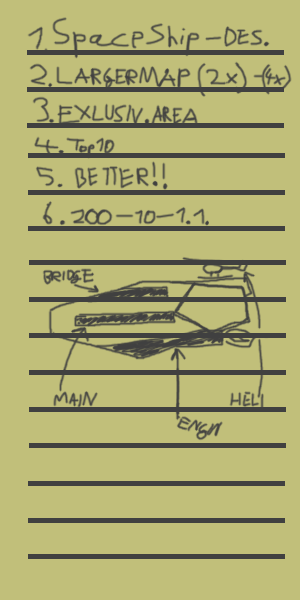 1. SpaceShip-DES.
2. LARGERMAP (2x) -(4x)
3. EXLUSIV. AREA
4. Top10
5. BETTER!!
6. 200-10-1.1.
BRIDGE
MAIN
HELI
ENGIN